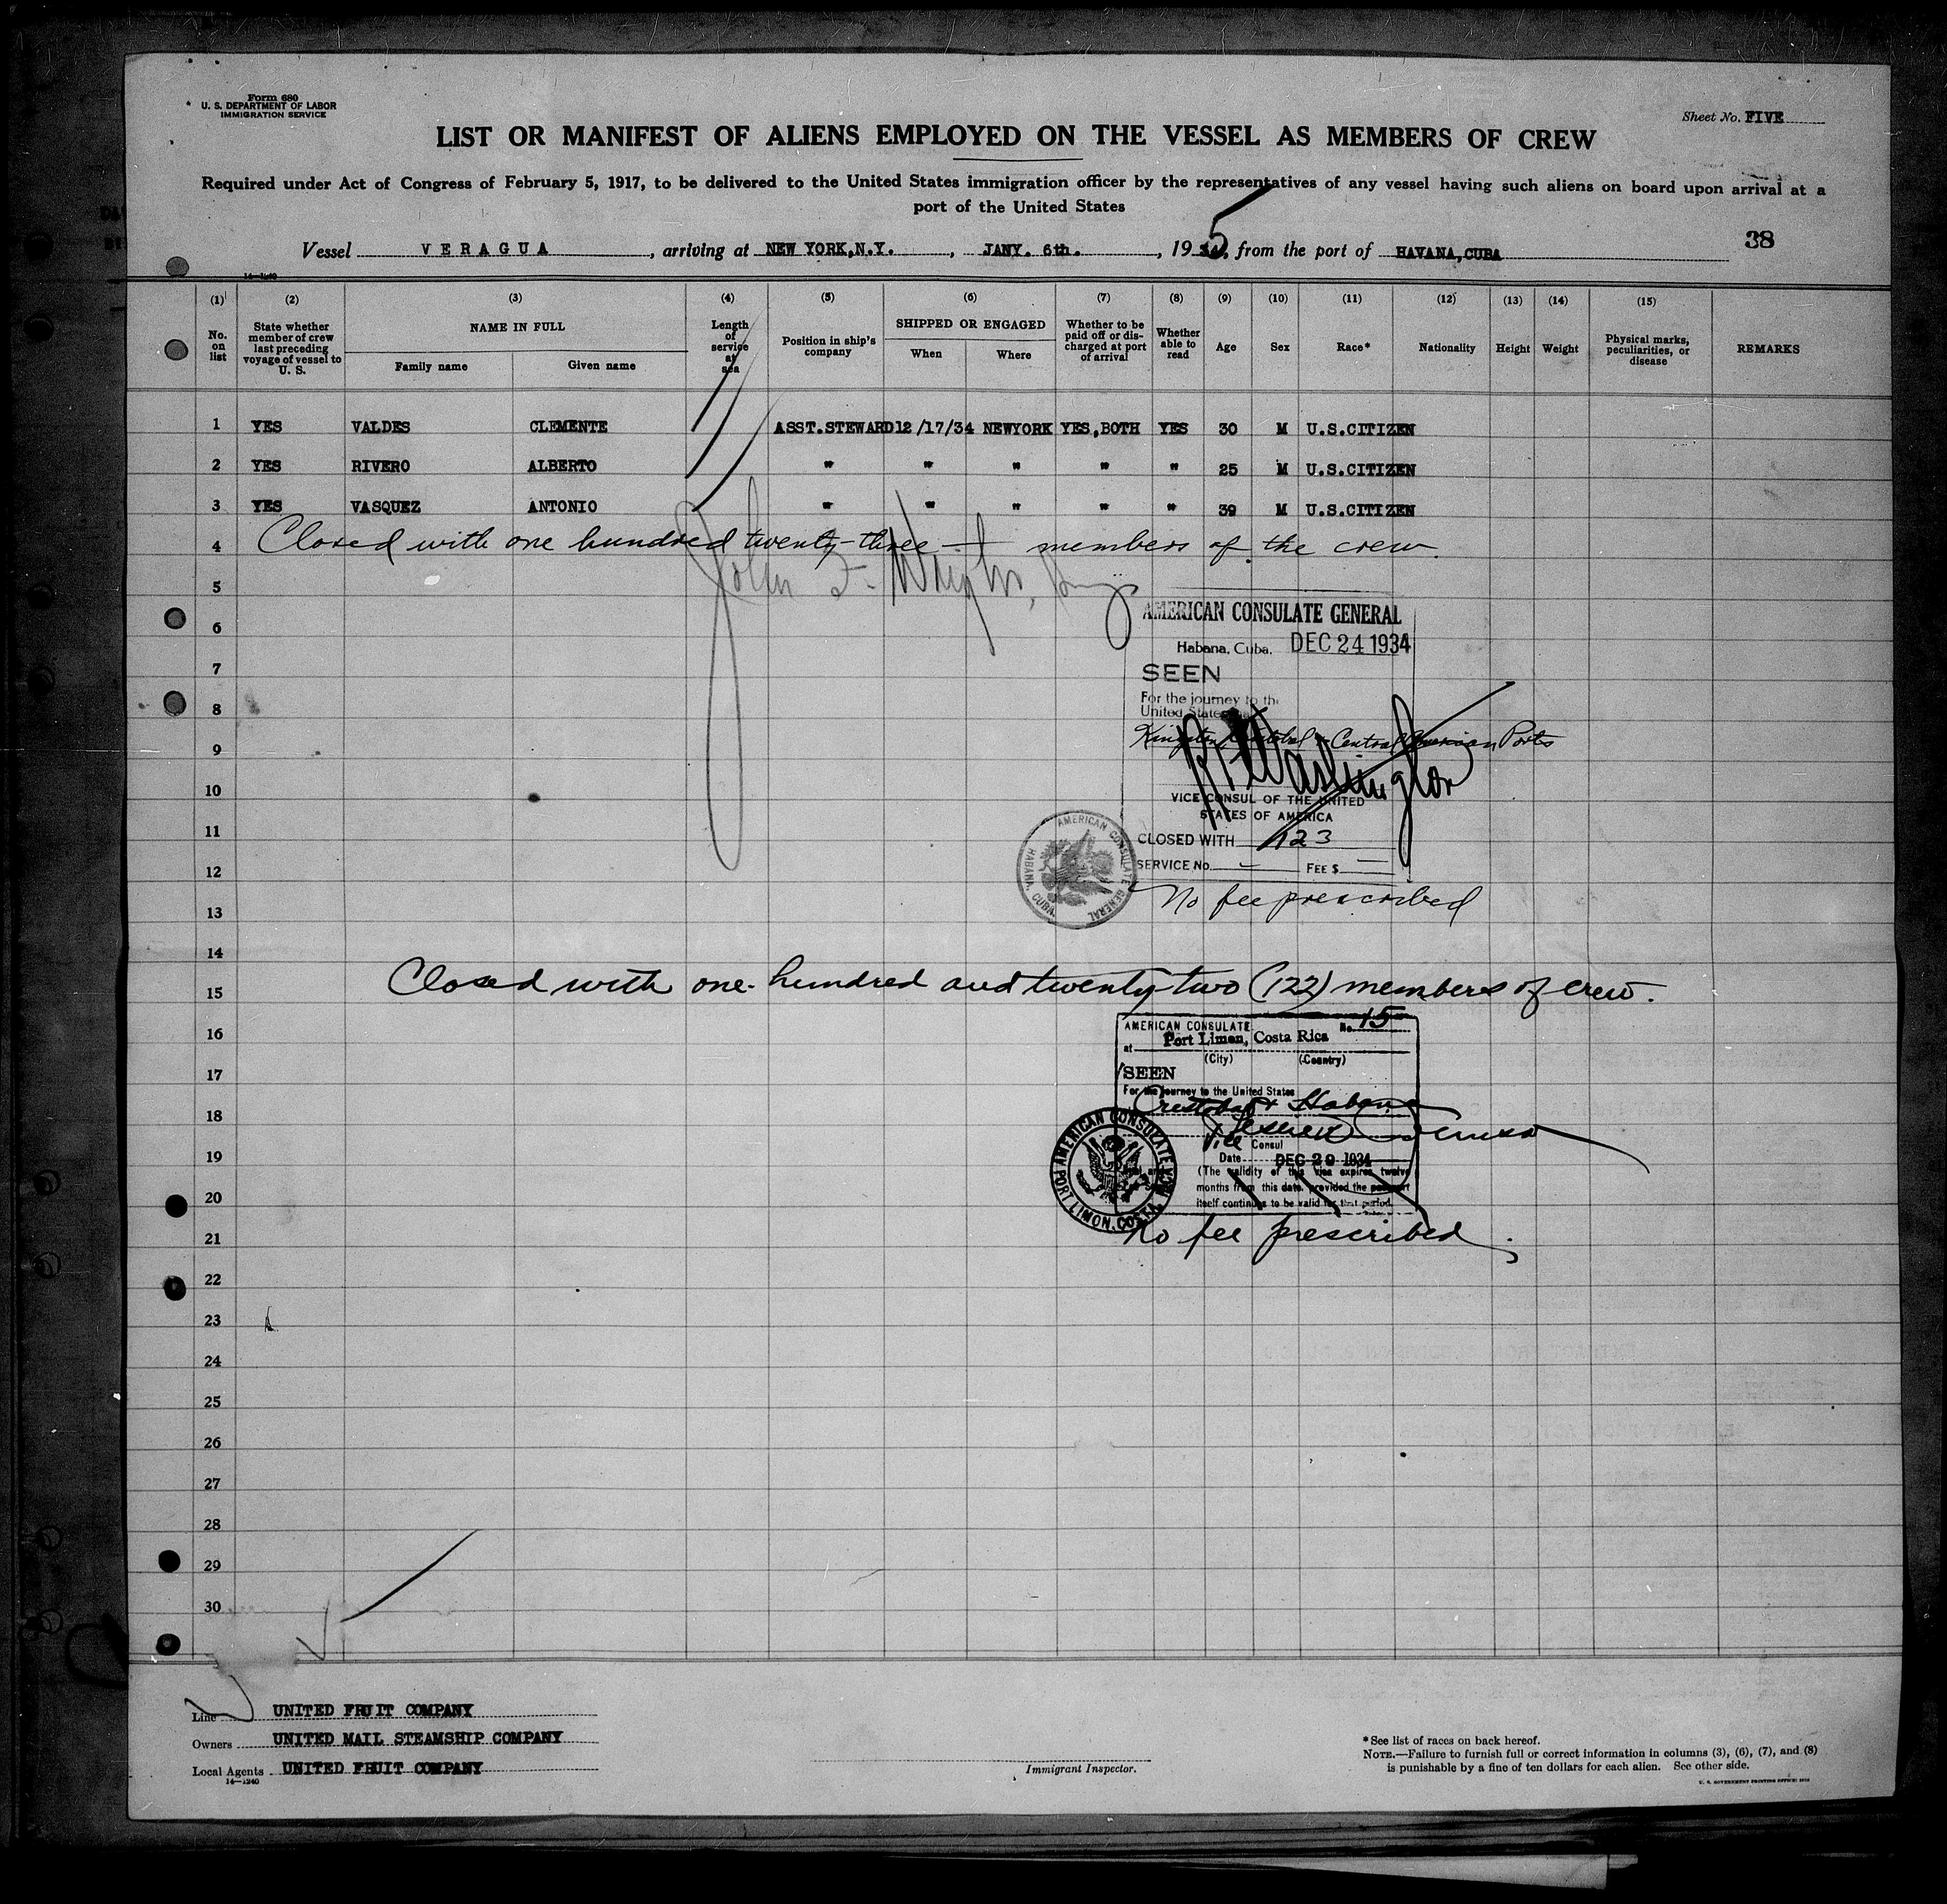 Form 680
U. S. DEPARTMENT OF LABOR
IMMIGRATION SERVICE
Sheet No. FIVE
LIST OR MANIFEST OF ALIENS EMPLOYED ON THE VESSEL AS MEMBERS OF CREW
Required under Act of Congress of February 5, 1917, to be delivered to the United States immigration officer by the representatives of any vessel having such aliens on board upon arrival at a
port of the United States
Vessel VERAGUA, arriving at NEW YORK,N.Y., JANY. 6th., 1935, from the port of HAVANA,CUBA
38
14-1240
(1) (2) (3) (4) (5) (6) (7) (8) (9) (10) (11) (12) (13) (14) (15)
No. on list
State whether member of crew last preceding voyage of vessel to U. S.
NAME IN FULL
Family name Given name
Length of service at sea
Position in ship's company
SHIPPED OR ENGAGED
When Where
Whether to be paid off or discharged at port of arrival
Whether able to read
Age Sex Race* Nationality Height Weight
Physical marks, peculiarities, or disease
REMARKS
1 YES VALDES CLEMENTE ASST.STEWARD 12/17/34 NEWYORK YES,BOTH YES 30 M U.S.CITIZEN
2 YES RIVERO ALBERTO " " " " " 25 M U.S.CITIZEN
3 YES VASQUEZ ANTONIO " " " " " 39 M U.S.CITIZEN
4 Closed with one hundred twenty-three members of the crew.
John F. Wright,
5
6
7
8
9
10
11
12
13
AMERICAN CONSULATE GENERAL
Habana, Cuba. DEC 24 1934
SEEN
For the journey to the
United States
Kingston, Cristobal & Central American Ports
Washington
VICE CONSUL OF THE UNITED
STATES OF AMERICA
CLOSED WITH 123
SERVICE No. — FEE $ —
AMERICAN CONSULATE GENERAL
HABANA, CUBA
No fee prescribed
14
15 Closed with one-hundred and twenty-two (122) members of crew.
16
17
18
19
20
21
AMERICAN CONSULATE No. 15
at Port Limon, Costa Rica
(City) (Country)
SEEN
For the journey to the United States
Cristobal & Habana
Vice Consul
Date DEC 29 1934
(The validity of this visa expires twelve
months from this date, provided the passport
itself continues to be valid for that period.
AMERICAN CONSULATE
PORT LIMON, COSTA RICA
No fee prescribed.
22
23
24
25
26
27
28
29
30
Line UNITED FRUIT COMPANY
Owners UNITED MAIL STEAMSHIP COMPANY
Local Agents UNITED FRUIT COMPANY
14-1240
Immigrant Inspector.
*See list of races on back hereof.
NOTE.—Failure to furnish full or correct information in columns (3), (6), (7), and (8)
is punishable by a fine of ten dollars for each alien. See other side.
U. S. GOVERNMENT PRINTING OFFICE: